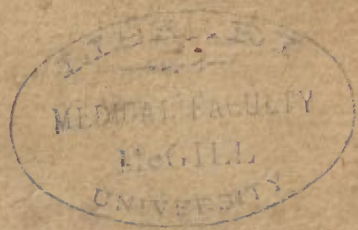 LIBRARY
MEDICAL FACULTY
McGILL
UNIVERSITY